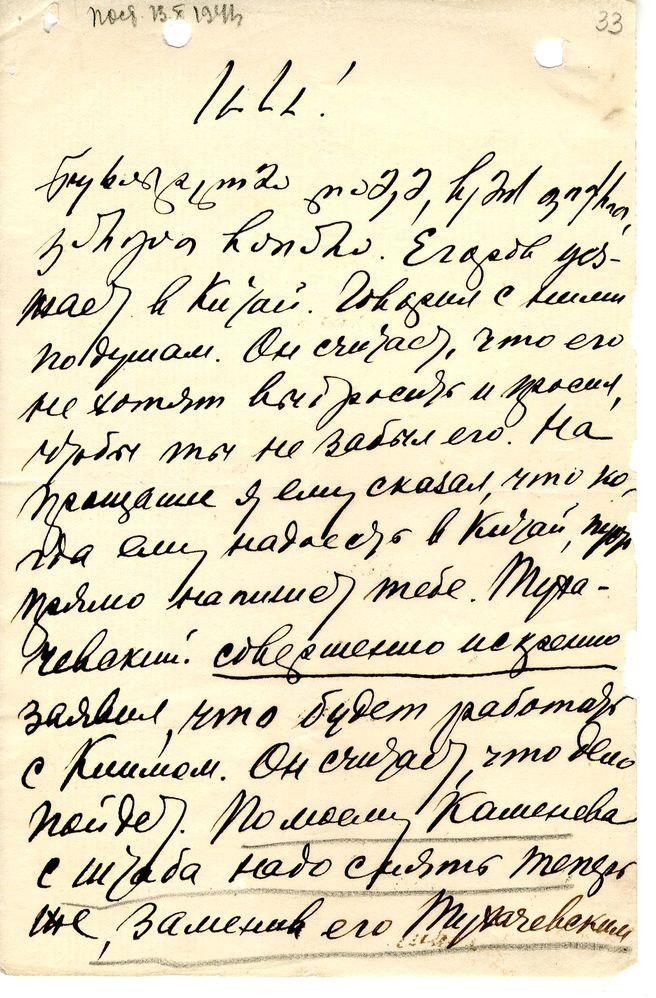 33
Егоров уез-
жает в Китай. Говорил с ними
по душам. Он считает, что его
не хотят выбросить и просил,
чтобы ты не забыл его. На
прощание я ему сказал, что ко-
гда ему надоест в Китай, пусть
прямо напишет тебе. Туха-
чевский совершенно искренно
заявил, что будет работать
с Климом. Он считает, что дело
пойдет. По моему Каменева
с штаба надо снять теперь
же, заменив его Тухачевским